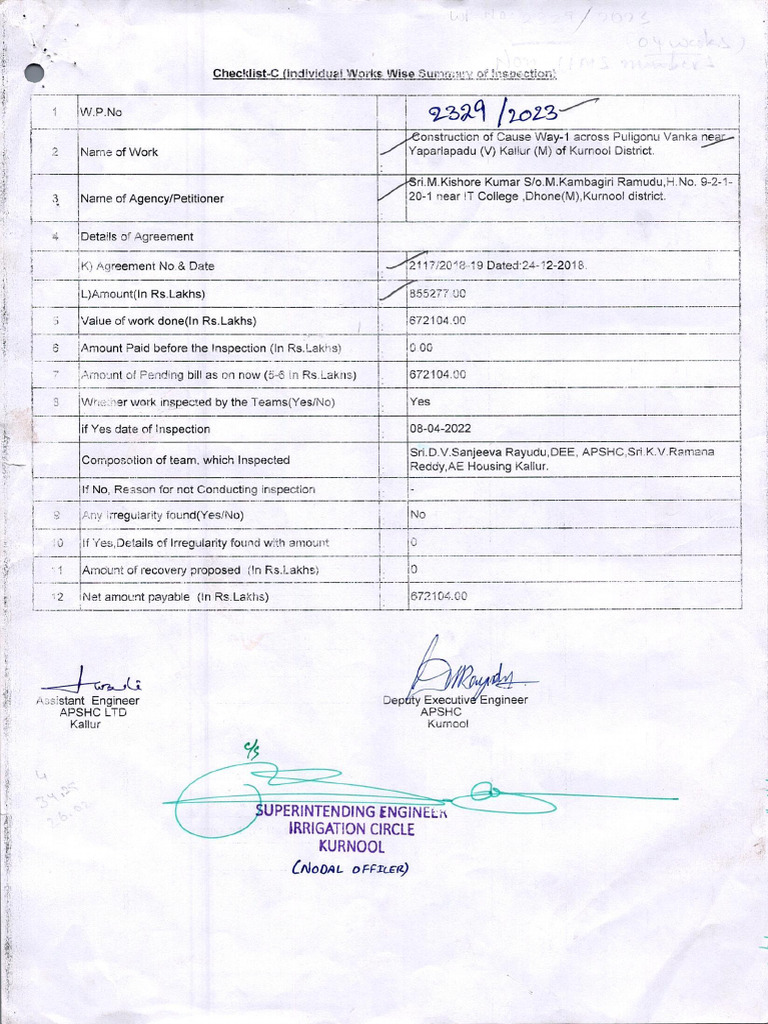 Checklist-C (Individual Works Wise Summary of Inspection)
1 W.P.No 2329/2023
2 Name of Work Construction of Cause Way-1 across Puligonu Vanka near
Yaparlapadu (V) Kallur (M) of Kurnool District.
3 Name of Agency/Petitioner Sri.M.Kishore Kumar S/o.M.Kambagiri Ramudu,H.No. 9-2-1-
20-1 near IT College ,Dhone(M),Kurnool district.
4 Details of Agreement
K) Agreement No & Date 2117/2018-19 Dated:24-12-2018.
L)Amount(In Rs.Lakhs) 855277.00
5 Value of work done(In Rs.Lakhs) 672104.00
6 Amount Paid before the Inspection (In Rs.Lakhs) 0.00
7 Amount of Pending bill as on now (5-6 In Rs.Lakhs) 672104.00
8 Whether work inspected by the Teams(Yes/No) Yes
if Yes date of Inspection 08-04-2022
Composotion of team, which Inspected Sri.D.V.Sanjeeva Rayudu,DEE, APSHC,Sri.K.V.Ramana
Reddy,AE Housing Kallur.
If No, Reason for not Conducting inspection -
9 Any Irregularity found(Yes/No) No
10 If Yes,Details of Irregularity found with amount 0
11 Amount of recovery proposed (In Rs.Lakhs) 0
12 Net amount payable (In Rs.Lakhs) 672104.00
Assistant Engineer
APSHC LTD
Kallur
Deputy Executive Engineer
APSHC
Kurnool
c/s
SUPERINTENDING ENGINEER
IRRIGATION CIRCLE
KURNOOL
(NODAL OFFICER)